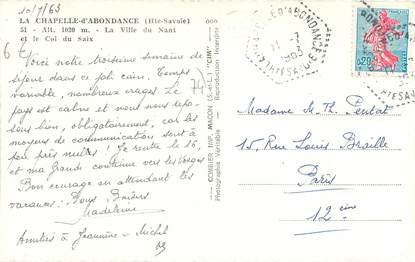 10/7/63
LA CHAPELLE-d'ABONDANCE (Hte-Savoie)
51 - Alt. 1020 m. - La Ville du Nant
et le Col du Saix
Voici notre troisième semaine de
séjour dans ce joli coin. Temps
variable, nombreux orages. Le
pays est calme et nous nous repo-
sons bien, obligatoirement, car les
moyens de communication sont à
peu près nulles. Je rentre le 16,
et ma Grande continue vers les Vosges
Bon courage en attendant les
vacances. Bons Baisers
Madeleine
Amitiés à Jeannine - Michel
COMBIER IMP. MACON (S.-et-L.) "CIM"
Photographie Véritable - Reproduction Interdite
CHAPELLE D'ABONDANCE
11 - 7
1963
HTE SAVOIE
0,20
Madame M. Th. Pentat
15, Rue Louis Braille
Paris
12 ème